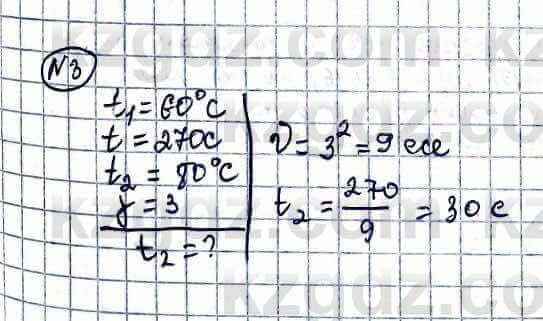 N3
t₁ = 60°C
t = 270c
t₂ = 80°C
γ = 3
t₂ = ?
υ = 3² = 9 есе
t₂ = 270/9 = 30 c
kzgdz.com